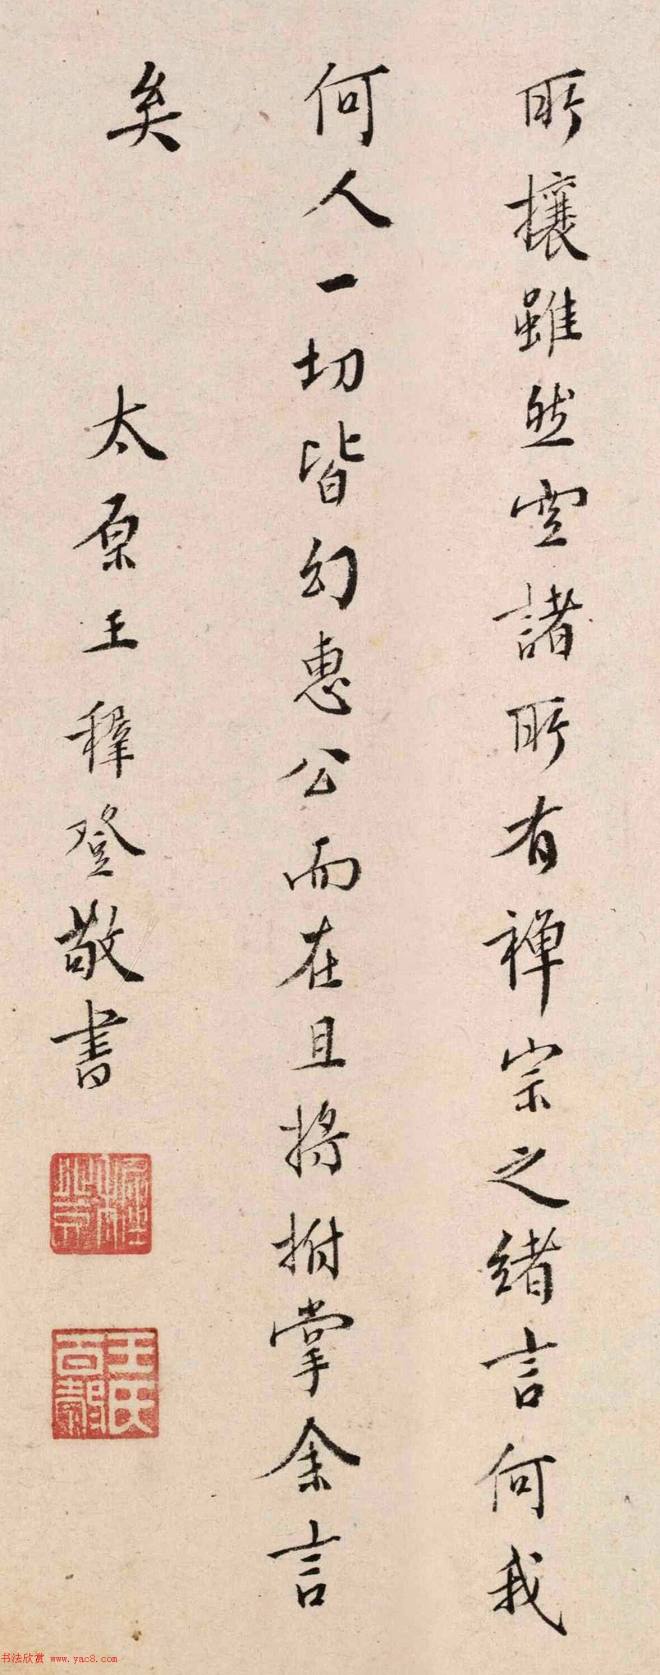 所攘雖然空諸所有禅宗之緒言何我
何人一切皆幻惠公而在且將拊掌余言
矣
太原王穉登敬書
王氏百穀
书法欣赏 www.yac8.com